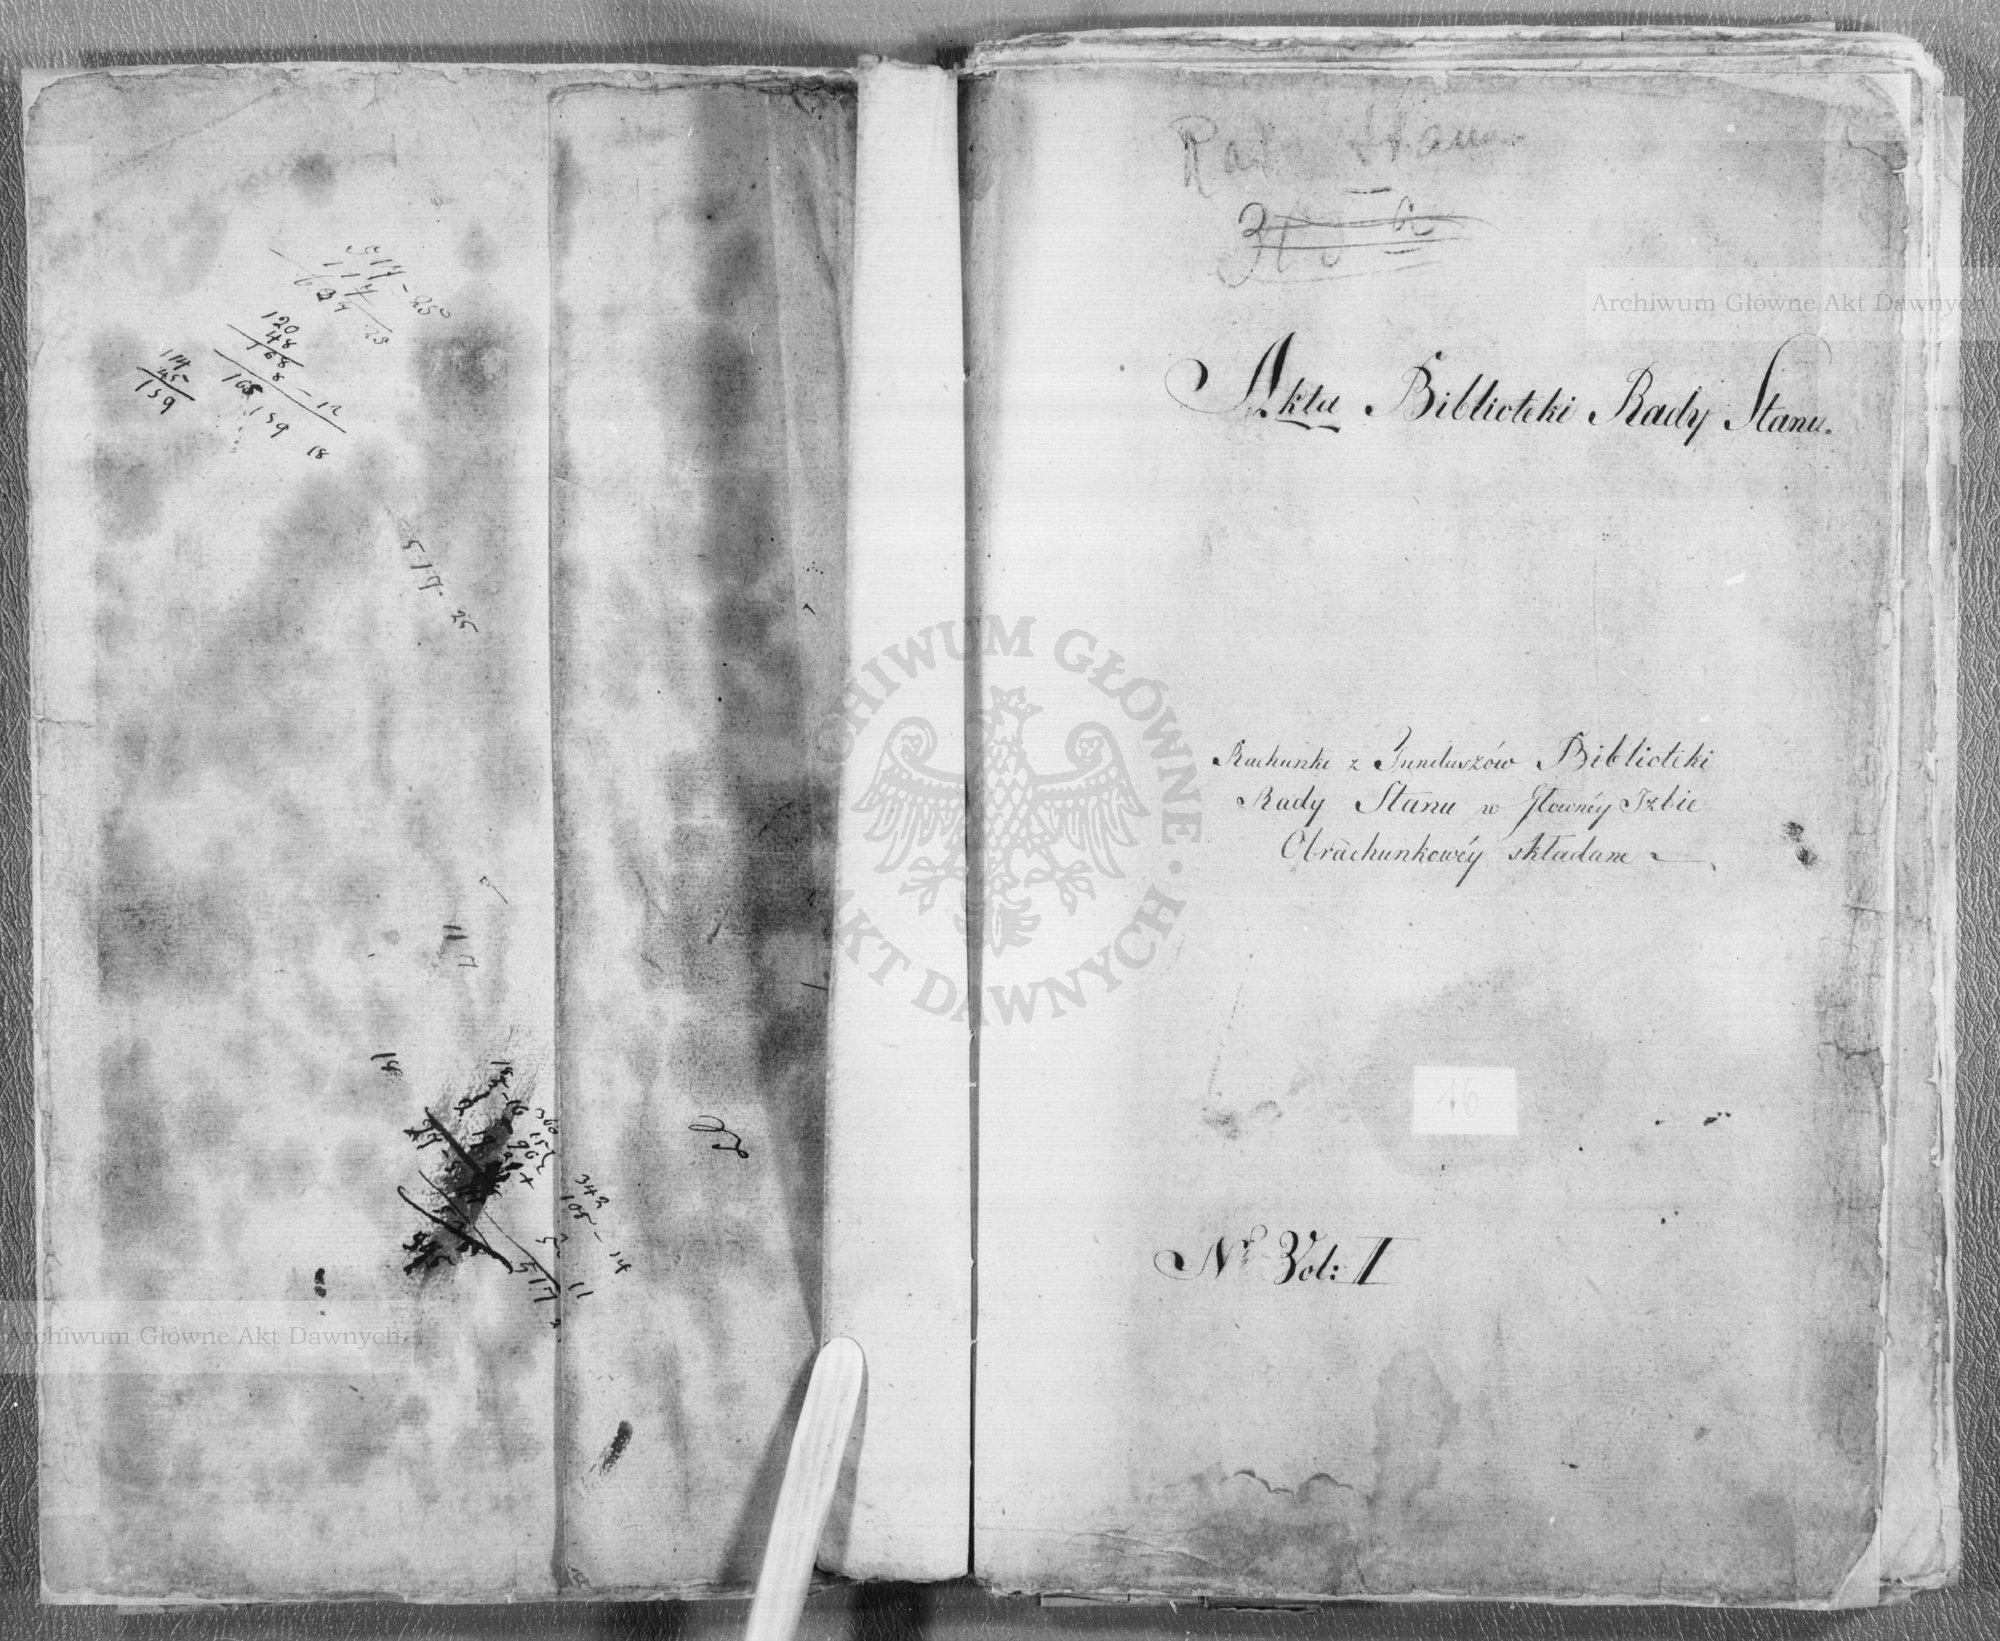 517 - 25
117
634 25
120
48
168
8 - 12
168
159
18
114
45
159
517 25
117
18
360
343
108 - 14
517 11
345
Rada Stanu
Akta Biblioteki Rady Stanu.
Rachunki z Funduszów Biblioteki
Rady Stanu w Głownéy Izbie
Obrachunkowéy składane
16
Nr Vol: I
Archiwum Główne Akt Dawnych
Archiwum Główne Akt Dawnych
ARCHIWUM GŁÓWNE AKT DAWNYCH